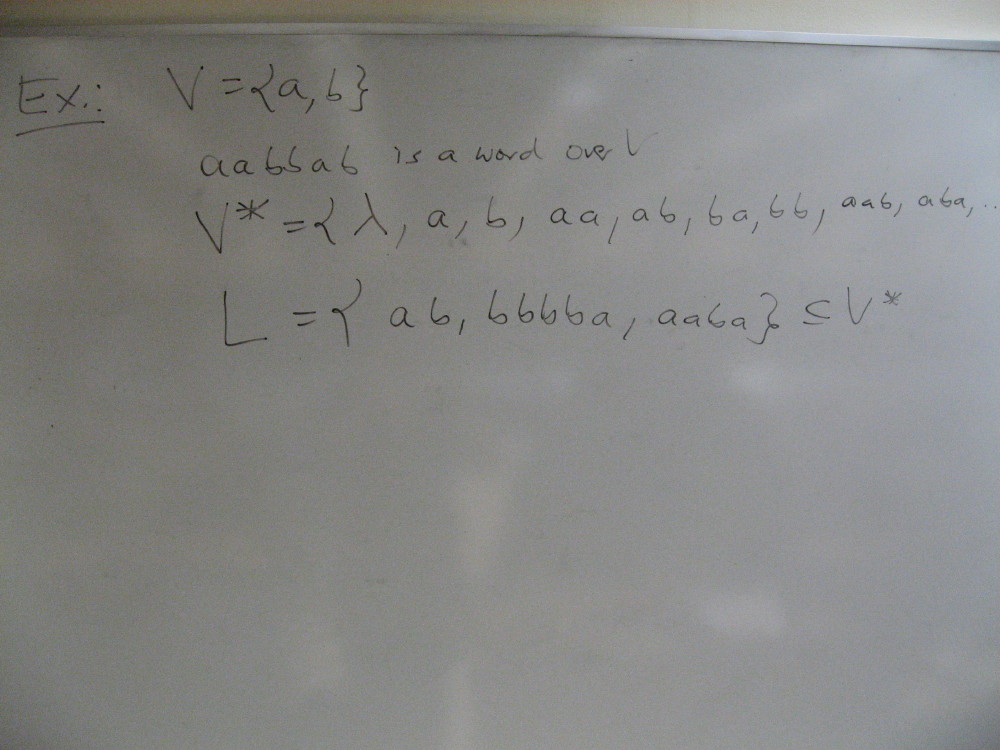 Ex.: V = {a, b}
aabbab is a word over V
V* = { λ, a, b, aa, ab, ba, bb, aab, aba, ..
L = { ab, bbbba, aaba} ⊆ V*